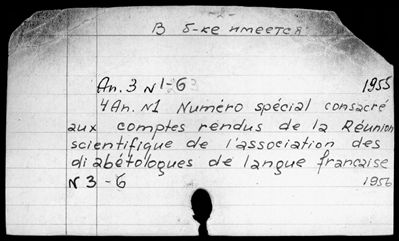 В б-ке имеется
An. 3 N 1-6 1955
4 An. N1 Numéro spécial consacré
aux comptes rendus de la Réunion
scientifique de l'association des
diabétologues de langue francaise
N 3 - 6 1956